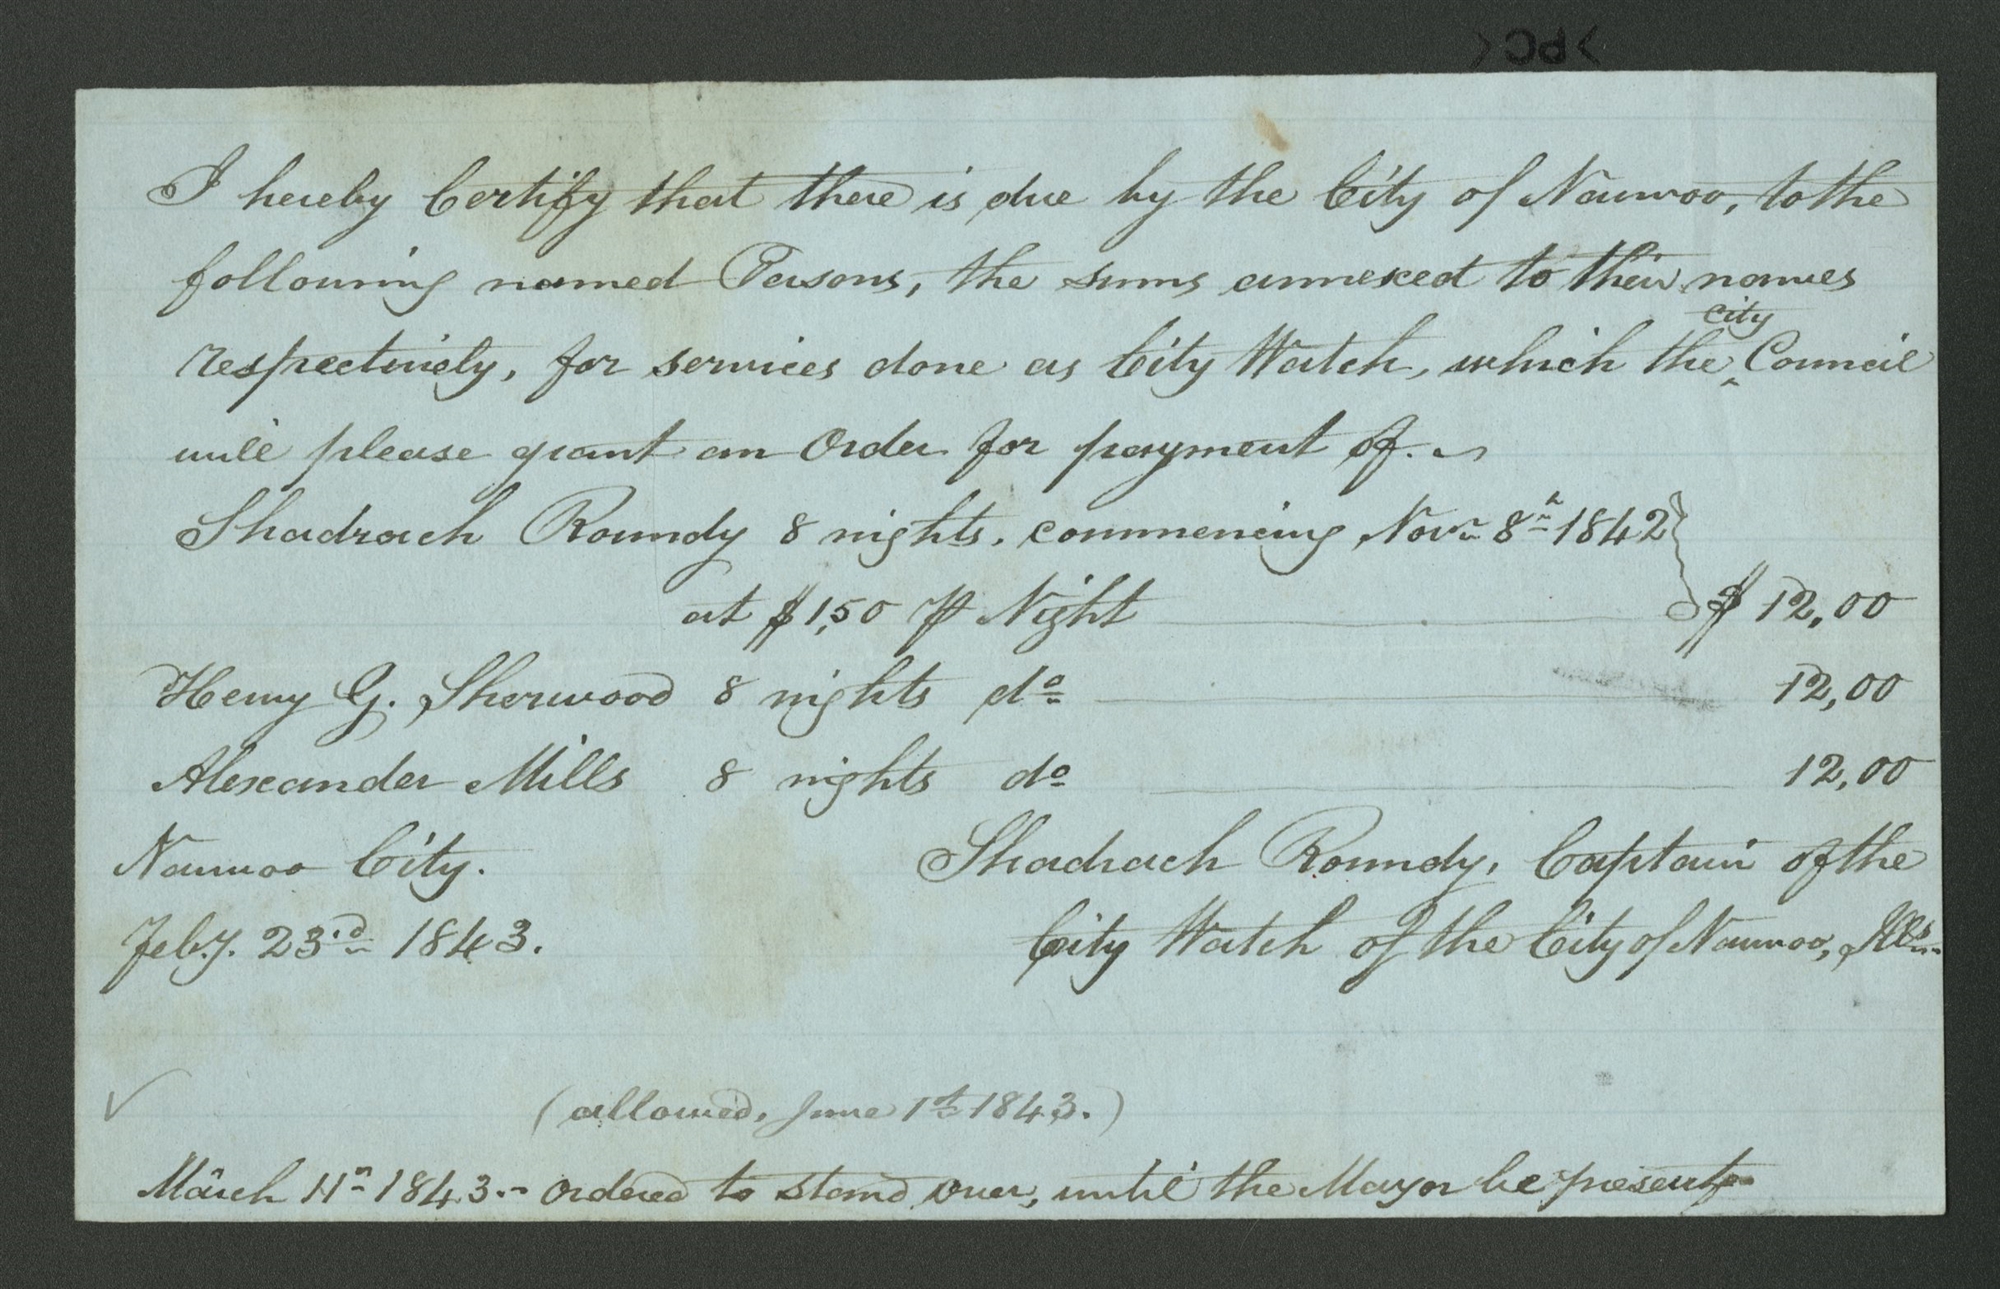 I hereby Certify that there is due by the City of Nauvoo, to the
following named Persons, the sums annexed to their names
respectively, for services done as City Watch, which the ^city Council
will please grant an Order for payment of.~
Shadrach Roundy 8 nights. commencing Novr. 8th 1842
at $1,50 ⅌ Night $12,00
Henry G. Sherwood 8 nights do 12,00
Alexander Mills 8 nights do 12,00
Nauvoo City. Shadrach Roundy, Captain of the
Feby. 23rd 1843. City Watch of the City of Nauvoo, Ills.
(allowed, June 1st 1843.)
March 11th 1843.- Ordered to stand over, until the Mayor be present